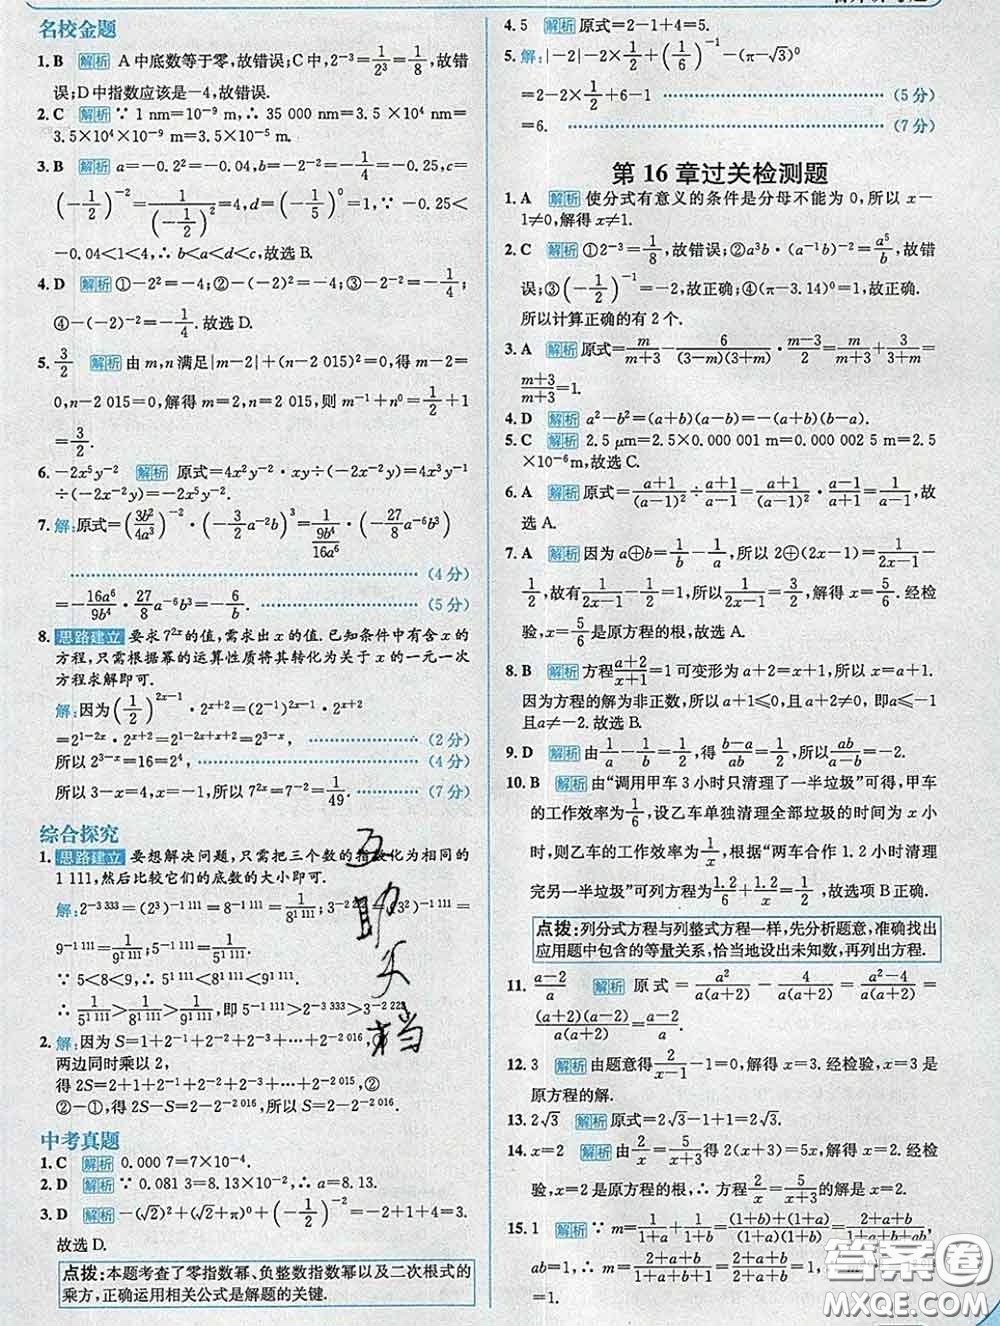 名校金题
1. B 解析 A中底数等于零,故错误;C中,2⁻³=1/2³=1/8,故错
误;D中指数应该是-4,故错误.
2. C 解析 ∵ 1 nm=10⁻⁹ m,∴ 35 000 nm=3.5 ×10⁴ nm=
3.5×10⁴×10⁻⁹ m=3.5×10⁻⁵ m.
3. B 解析 a=-0.2²=-0.04,b=-2⁻²=-1/4=-0.25,c=
(-1/2)⁻²=1/(-1/2)²=4,d=(-1/5)⁰=1. ∵ -0.25<
-0.04<1<4,∴ b<a<d<c,故选 B.
4. D 解析 ①-2²=-4;②-(-2)²=-4;③-2⁻²=-1/4;
④-(-2)⁻²=-1/4.故选 D.
5. 3/2 解析 由 m,n满足|m-2|+(n-2 015)²=0,得 m-2=
0,n-2 015=0,解得 m=2,n=2 015,则 m⁻¹+n⁰=1/2+1
=3/2.
6. -2x⁵y⁻² 解析 原式=4x²y⁻²·xy÷(-2x⁻²y)=4x³y⁻¹
÷(-2x⁻²y)=-2x⁵y⁻².
7. 解:原式=(3b²/4a³)⁻²·(-3/2a⁻²b)³=1/(9b⁴/16a⁶)·(-27/8a⁻⁶b³)
(4 分)
=-16a⁶/9b⁴·27/8a⁻⁶b³=-6/b. (5 分)
8. 思路建立 要求 7²ˣ的值,需求出 x 的值.已知条件中有含 x 的
方程,只需根据幂的运算性质将其转化为关于 x 的一元一次
方程求解即可.
解:因为(1/2)²ˣ⁻¹·2ˣ⁺²=(2⁻¹)²ˣ⁻¹·2ˣ⁺²
=2¹⁻²ˣ·2ˣ⁺²=2¹⁻²ˣ⁺ˣ⁺²=2³⁻ˣ, (2 分)
所以 2³⁻ˣ=16=2⁴, (4 分)
所以 3-x=4,x=-1.所以 7²ˣ=7⁻²=1/49. (7 分)
综合探究
1. 思路建立 要想解决问题,只需把三个数的指数化为相同的
1 111,然后比较它们的底数的大小即可.
解:2⁻³ ³³³=(2³)⁻¹ ¹¹¹=8⁻¹ ¹¹¹=1/8¹ ¹¹¹;3⁻² ²²²=(3²)⁻¹ ¹¹¹=
9⁻¹ ¹¹¹=1/9¹ ¹¹¹;5⁻¹ ¹¹¹=1/5¹ ¹¹¹.
∵ 5<8<9,∴ 5¹ ¹¹¹<8¹ ¹¹¹<9¹ ¹¹¹.
∴ 1/5¹ ¹¹¹>1/8¹ ¹¹¹>1/9¹ ¹¹¹,即 5⁻¹ ¹¹¹>2⁻³ ³³³>3⁻² ²²²
2. 解:因为 S=1+2⁻¹+2⁻²+2⁻³+…+2⁻² ⁰¹⁶,①
两边同时乘以 2,
得 2S=2+1+2⁻¹+2⁻²+…+2⁻² ⁰¹⁵,②
②-①,得 2S-S=2-2⁻² ⁰¹⁶,所以 S=2-2⁻² ⁰¹⁶.
中考真题
1. C 解析 0.000 7=7×10⁻⁴.
2. D 解析 ∵ 0.081 3=8.13×10⁻²,∴ a=8.13.
3. D 解析 -(√2)²+(√2+π)⁰+(-1/2)⁻²=-2+1+4=3.
故选 D.
点拨:本题考查了零指数幂、负整数指数幂以及二次根式的
乘方,正确运用相关公式是解题的关键.
互助文档
4. 5 解析 原式=2-1+4=5.
5. 解:|-2|-2×1/2+(1/6)⁻¹-(π-√3)⁰
=2-2×1/2+6-1 (5 分)
=6. (7 分)
第 16 章过关检测题
1. A 解析 使分式有意义的条件是分母不能为 0,所以 x-
1≠0,解得 x≠1.
2. C 解析 ①2⁻³=1/8,故错误;②a³b·(a⁻¹b)⁻²=a⁵/b,故错
误;③(-1/2)⁻¹=-2,故正确;④(π-3.14)⁰=1,故正确.
所以计算正确的有 2 个.
3. A 解析 原式=m/(m+3)-6/(3-m)(3+m)·(m-3)/2=m/(m+3)+3/(3+m)=
(m+3)/(m+3)=1.
4. D 解析 a²-b²=(a+b)(a-b)=-(a+b)(b-a).
5. C 解析 2.5 μm=2.5×0.000 001 m=0.000 002 5 m=2.5
×10⁻⁶m,故选 C.
6. A 解析 原式=(a+1)/(a-1)²÷(a+1)/(a-1)=(a+1)/(a-1)²·(a-1)/(a+1)=1/(a-1),故
选 A.
7. A 解析 因为 a⊕b=1/b-1/a,所以 2⊕(2x-1)=1/(2x-1)-
1/2,故有1/(2x-1)-1/2=1.所以1/(2x-1)=3/2.解得 x=5/6.经检
验,x=5/6是原方程的根,故选 A.
8. B 解析 方程(a+2)/(x+1)=1 可变形为 a+2=x+1,所以 x=a+1.
因为方程的解为非正数,所以 a+1≤0,且 a+2≠0,即a≤-1
且a≠-2.故选 B.
9. D 解析 由1/a-1/b=1/2,得(b-a)/ab=1/2,所以ab/(a-b)=-2.
10. B 解析 由“调用甲车 3 小时只清理了一半垃圾”可得,甲车
的工作效率为1/6,设乙车单独清理全部垃圾的时间为 x 小
时,则乙车的工作效率为1/x,根据“两车合作 1.2 小时清理
完另一半垃圾”可列方程为1.2/6+1.2/x=1/2,故选项 B正确.
点拨:列分式方程与列整式方程一样,先分析题意,准确找出
应用题中包含的等量关系,恰当地设出未知数,再列出方程.
11. (a-2)/a 解析 原式=a²/a(a+2)-4/a(a+2)=(a²-4)/a(a+2)=
(a+2)(a-2)/a(a+2)=(a-2)/a.
12. 3 解析 由题意得2/(x-1)-1=0.解得 x=3.经检验,x=3 是
原方程的解.
13. 2√3 解析 原式=2√3-1+1=2√3.
14. x=2 解析 由2/x=5/(x+3)得 2(x+3)=5x,解得 x=2.经检
验,x=2 是原方程的根,∴ 方程2/x=5/(x+3)的解是 x=2.
15. 1 解析 ∵ m=1/(1+a)+1/(1+b)=(1+b)+(1+a)/(1+b)(1+a)=(2+a+b)/(1+a+b+ab),
ab=1,∴ m=(2+a+b)/(1+a+b+ab)=(2+a+b)/(1+a+b+1)=(2+a+b)/(2+a+b)
=1.
答案圈
MXQE.COM